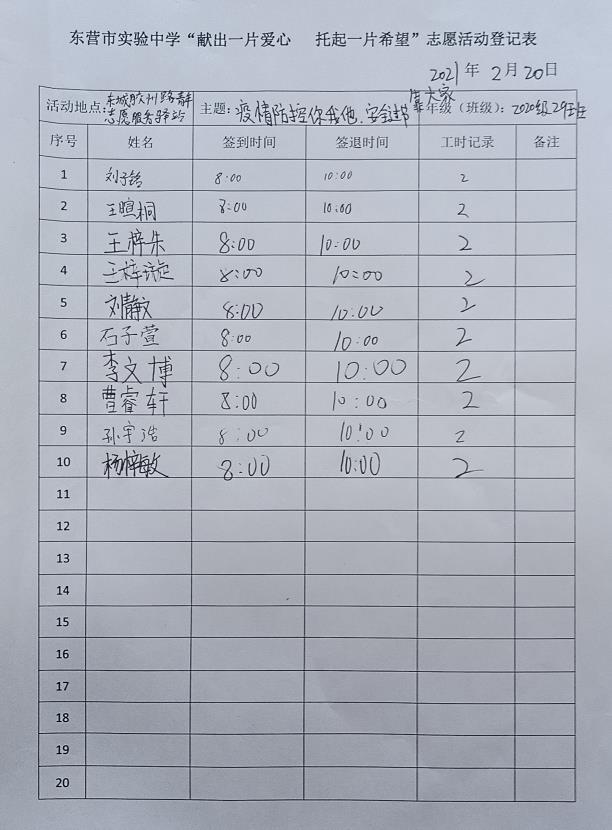 东营市实验中学“献出一片爱心 托起一片希望”志愿活动登记表
2021年 2月20日
活动地点:东城胶州路青年志愿服务驿站 主题:疫情防控你我他,安全进万大家 年级(班级):2020级29班
序号 姓名 签到时间 签退时间 工时记录 备注
1 刘子铭 8:00 10:00 2
2 王暄桐 8:00 10:00 2
3 王梓朱 8:00 10:00 2
4 王梓 8:00 10:00 2
5 刘静文 8:00 10:00 2
6 石子萱 8:00 10:00 2
7 李文博 8:00 10:00 2
8 曹睿轩 8:00 10:00 2
9 孙宇浩 8:00 10:00 2
10 杨梓敏 8:00 10:00 2
11
12
13
14
15
16
17
18
19
20